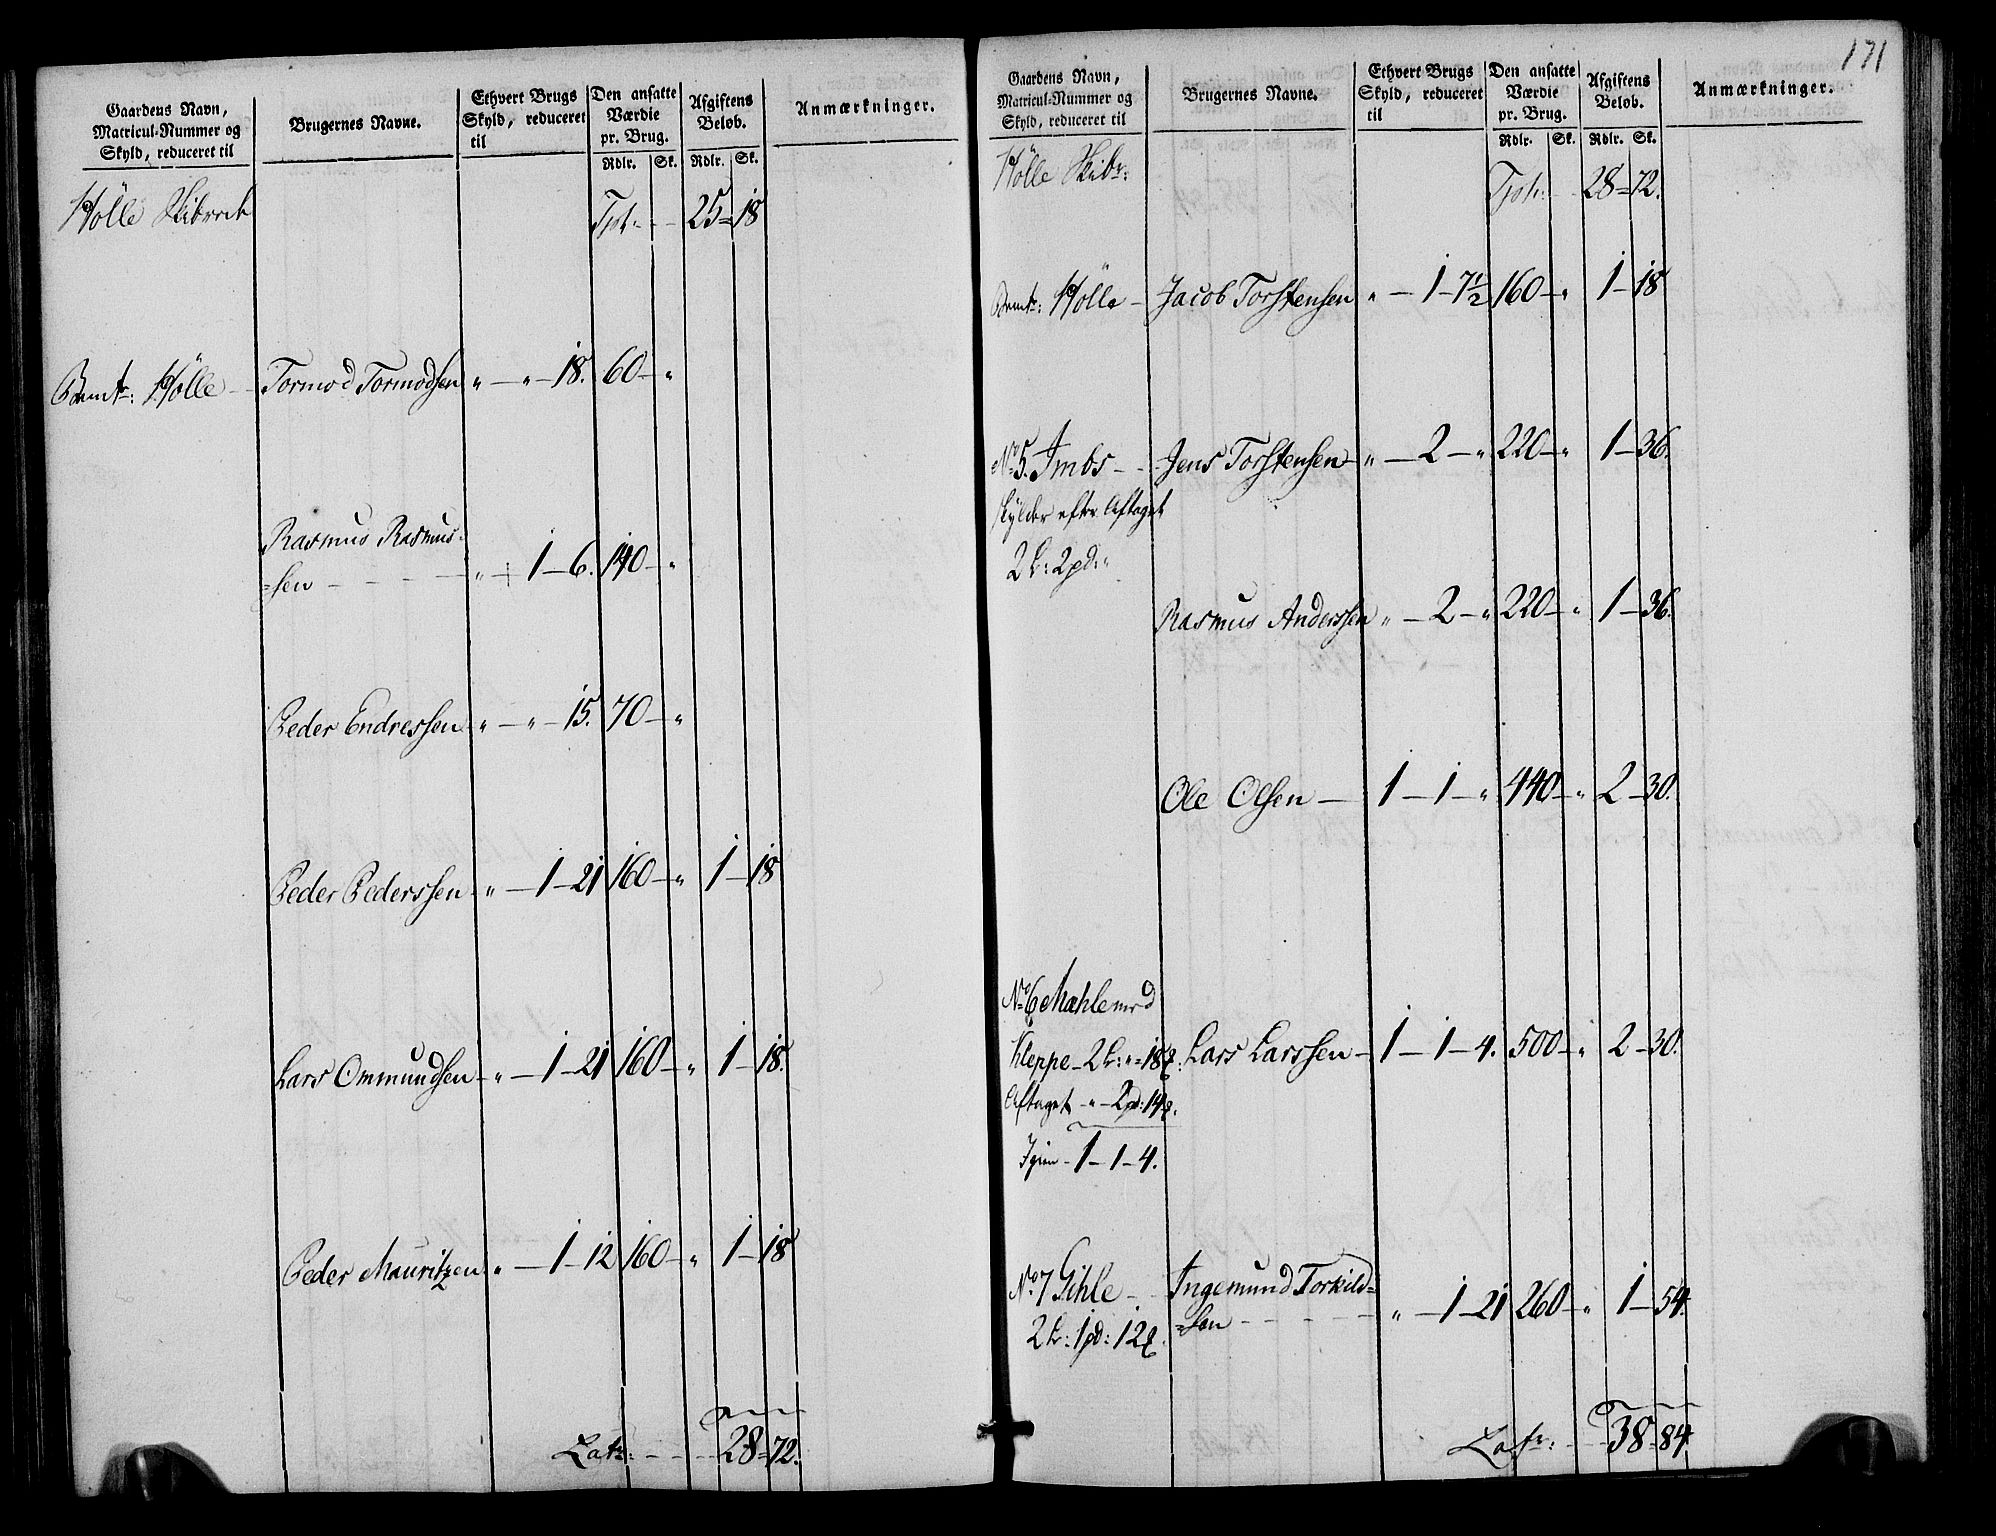 Gaardens Navn,
Matricul-Nummer og
Skyld, reduceret til
Brugernes Navne.
Ethvert Brugs
Skyld, reduceret
til
Den ansatte
Værdie
pr. Brug.
Rdlr. Sk.
Afgiftens
Belob.
Rdlr. Sk.
Anmærkninger.
Hölle Skibred Tpt: 25 = 18
Bemt: Hölle - Tormod Tormodsen " - " - 18. 60 - "
Rasmus Rasmus=
=sen - - - - " - 1 - 6. 140 - "
Peder Endressen " - " - 15. 70 - "
Peder Pederssen " - 1 - 21 160 - " 1 - 18
Lars Ommundsen " - 1 - 21 160 - " 1 - 18.
Peder Mauritzen " - 1 - 12 160 - " 1 - 18
Lats: - - - 28 = 72.
171
Gaardens Navn,
Matricul-Nummer og
Skyld, reduceret til
Brugernes Navne.
Ethvert Brugs
Skyld, reduceret
til
Den ansatte
Værdie
pr. Brug.
Rdlr. Sk.
Afgiftens
Belob.
Rdlr. Sk.
Anmærkninger.
Hölle Skibr: Tpt: 28 = 72.
Bemt: Hölle - Jacob Torstensen " - 1 - 7½ 160 - " 1 - 18
No 5. Imbs - - Jens Torstensen " - 2 - " 220 - " 1 - 36.
skylder efter Aftaget
2 L: 2 pd: "
Rasmus Anderssen " - 2 - " 220 - " 1 - 36.
Ole Olsen - 1 - 1 - " 440 - " 2 - 30.
No 6 Mæhle med
Kleppe - 2 L: " = 18 Lars Larssen - 1 - 1 - 4. 500 - " 2 - 30.
Aftaget - " - 2 pd: 14
Igien - 1 - 1 - 4.
No 7 Gihle - Ingemund Torkild=
=sen - - - - " - 1 - 21 260 - " 1 - 54.
2 L: 1 pd: 12
Lats: - - 38 = 84